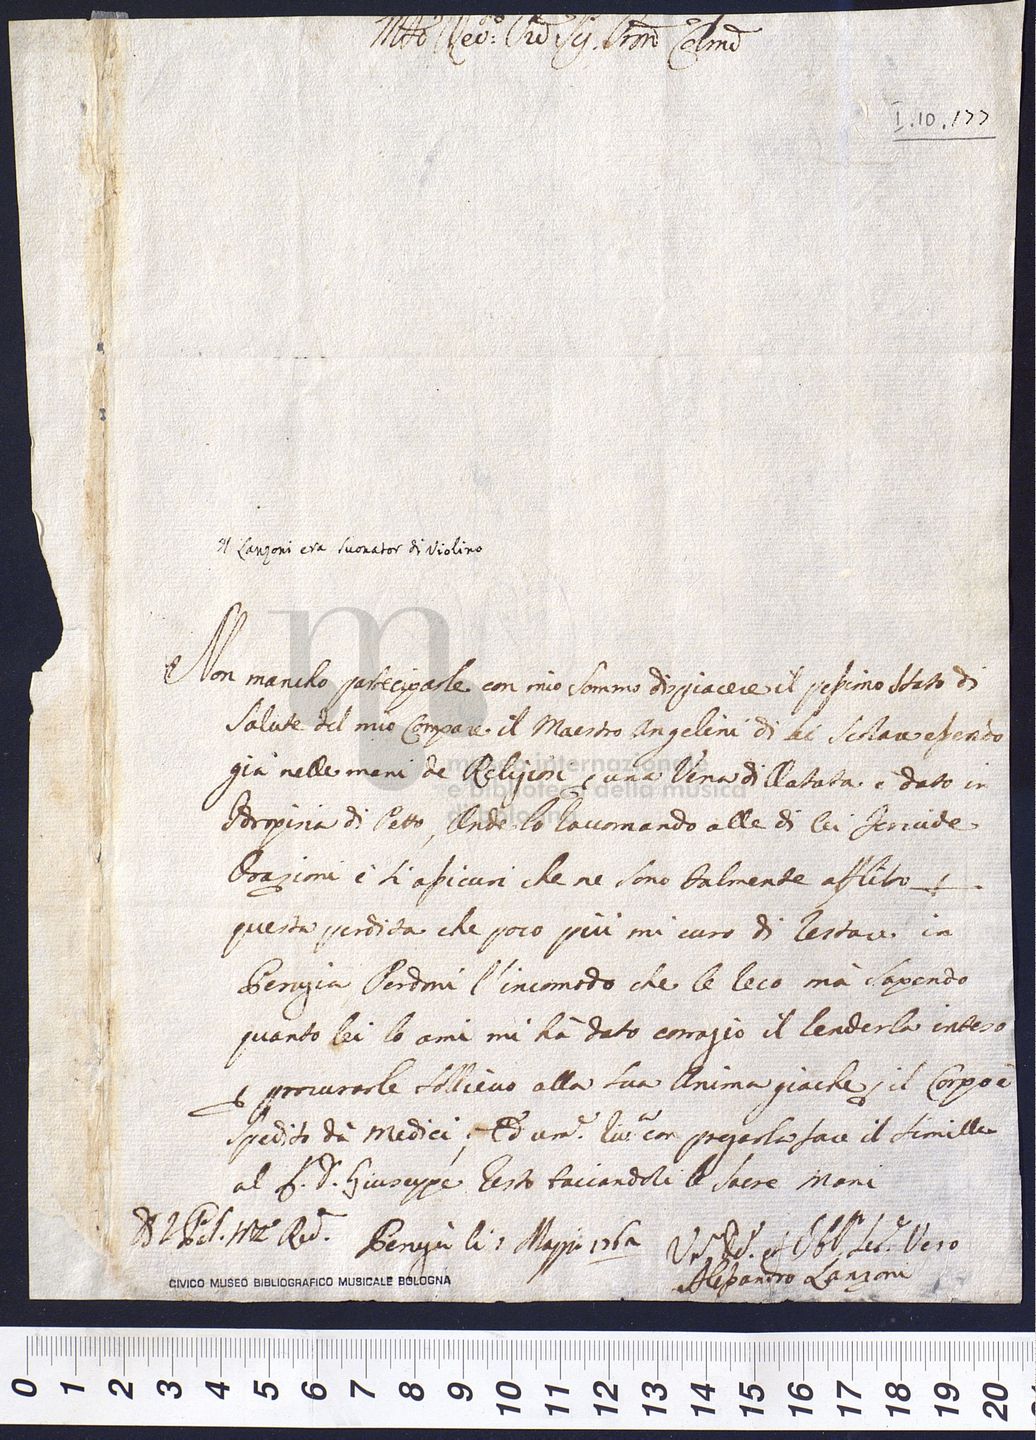 Mto Revdo Pre Sig. Prone Colmo
I.10.177
Il Lanzoni era Suonator di Violino
Non mancho parteciparle con mio sommo dispiacere il pessimo stato di
Salute del mio Compare il Maestro Angelini di lei Scolare essendo
gia nelle mani de Religiosi una Vena dillatata è dato in
Idropisia di Petto, Onde lo raccomando alle di lei fervide
Orazioni è si assicuri che ne sono talmente afflitto
questa perdita che poco più mi curo di restare in
Perugia, Perdoni l'incomodo che le reco mà sapendo
quanto lei lo ami mi hà dato coraggio il renderla inteso
procurarle sollievo alla sua Anima giache il Corpo è
spedito dà Medici, con pregarla fare il simille
al P. D. Giuseppe resto bacciandoli le Sacre Mani
Di V. P. Mto Revd.
Perugia li Maggio 176
Um. Dev. et Obb. Ser. Vero
Alessandro Lanzoni
museo internazionale
e biblioteca della musica
di bologna
CIVICO MUSEO BIBLIOGRAFICO MUSICALE BOLOGNA
0 1 2 3 4 5 6 7 8 9 10 11 12 13 14 15 16 17 18 19 20